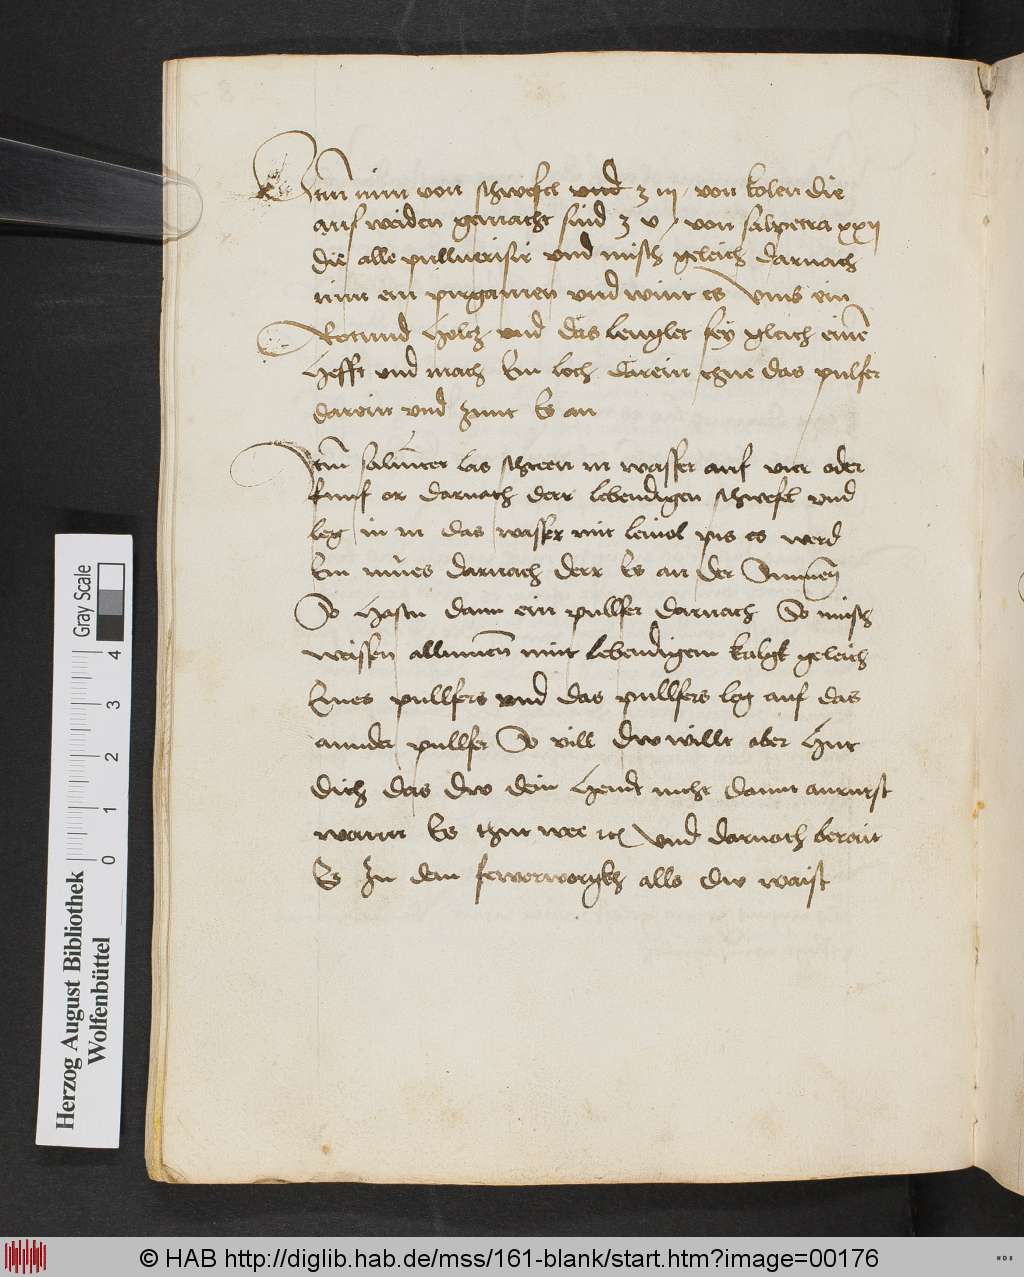 Item nim von schwefel und ʒ iij / von kolen die
aus weiden gemacht sind ʒ v / von salpetra xxij
die alle pulluerisir und misch geleich darnach
nim ein pirgamen und wint es vms ein
Rotund holtz und das lenglet sey gleich einē
hefft und mach Ein loch darein thue das pulfer
darein und zunt Es an
Itm̄ saliniter las schteen in wasser auf vier oder
funf or darnach derr lebendigen schwefel und
leg in in das wasser mit leinol pis es werd
Ein mues darnach derr Es an der Sunnen
So hastu dann ein pullfer darnach So misch
weissen allumen̄ mit lebendigem kalgk geleich
Eines pullfers und das pullfers leg auf das
annder pullfer So vill dw willt aber Hut
dich das dw dein Hendt nicht damit anrurst
wann Es thut wee etc Und darnach berait
Es Zu dem fewerwergkh alls dw waist
Gray Scale
0 1 2 3 4
Herzog August Bibliothek
Wolfenbüttel
© HAB http://diglib.hab.de/mss/161-blank/start.htm?image=00176